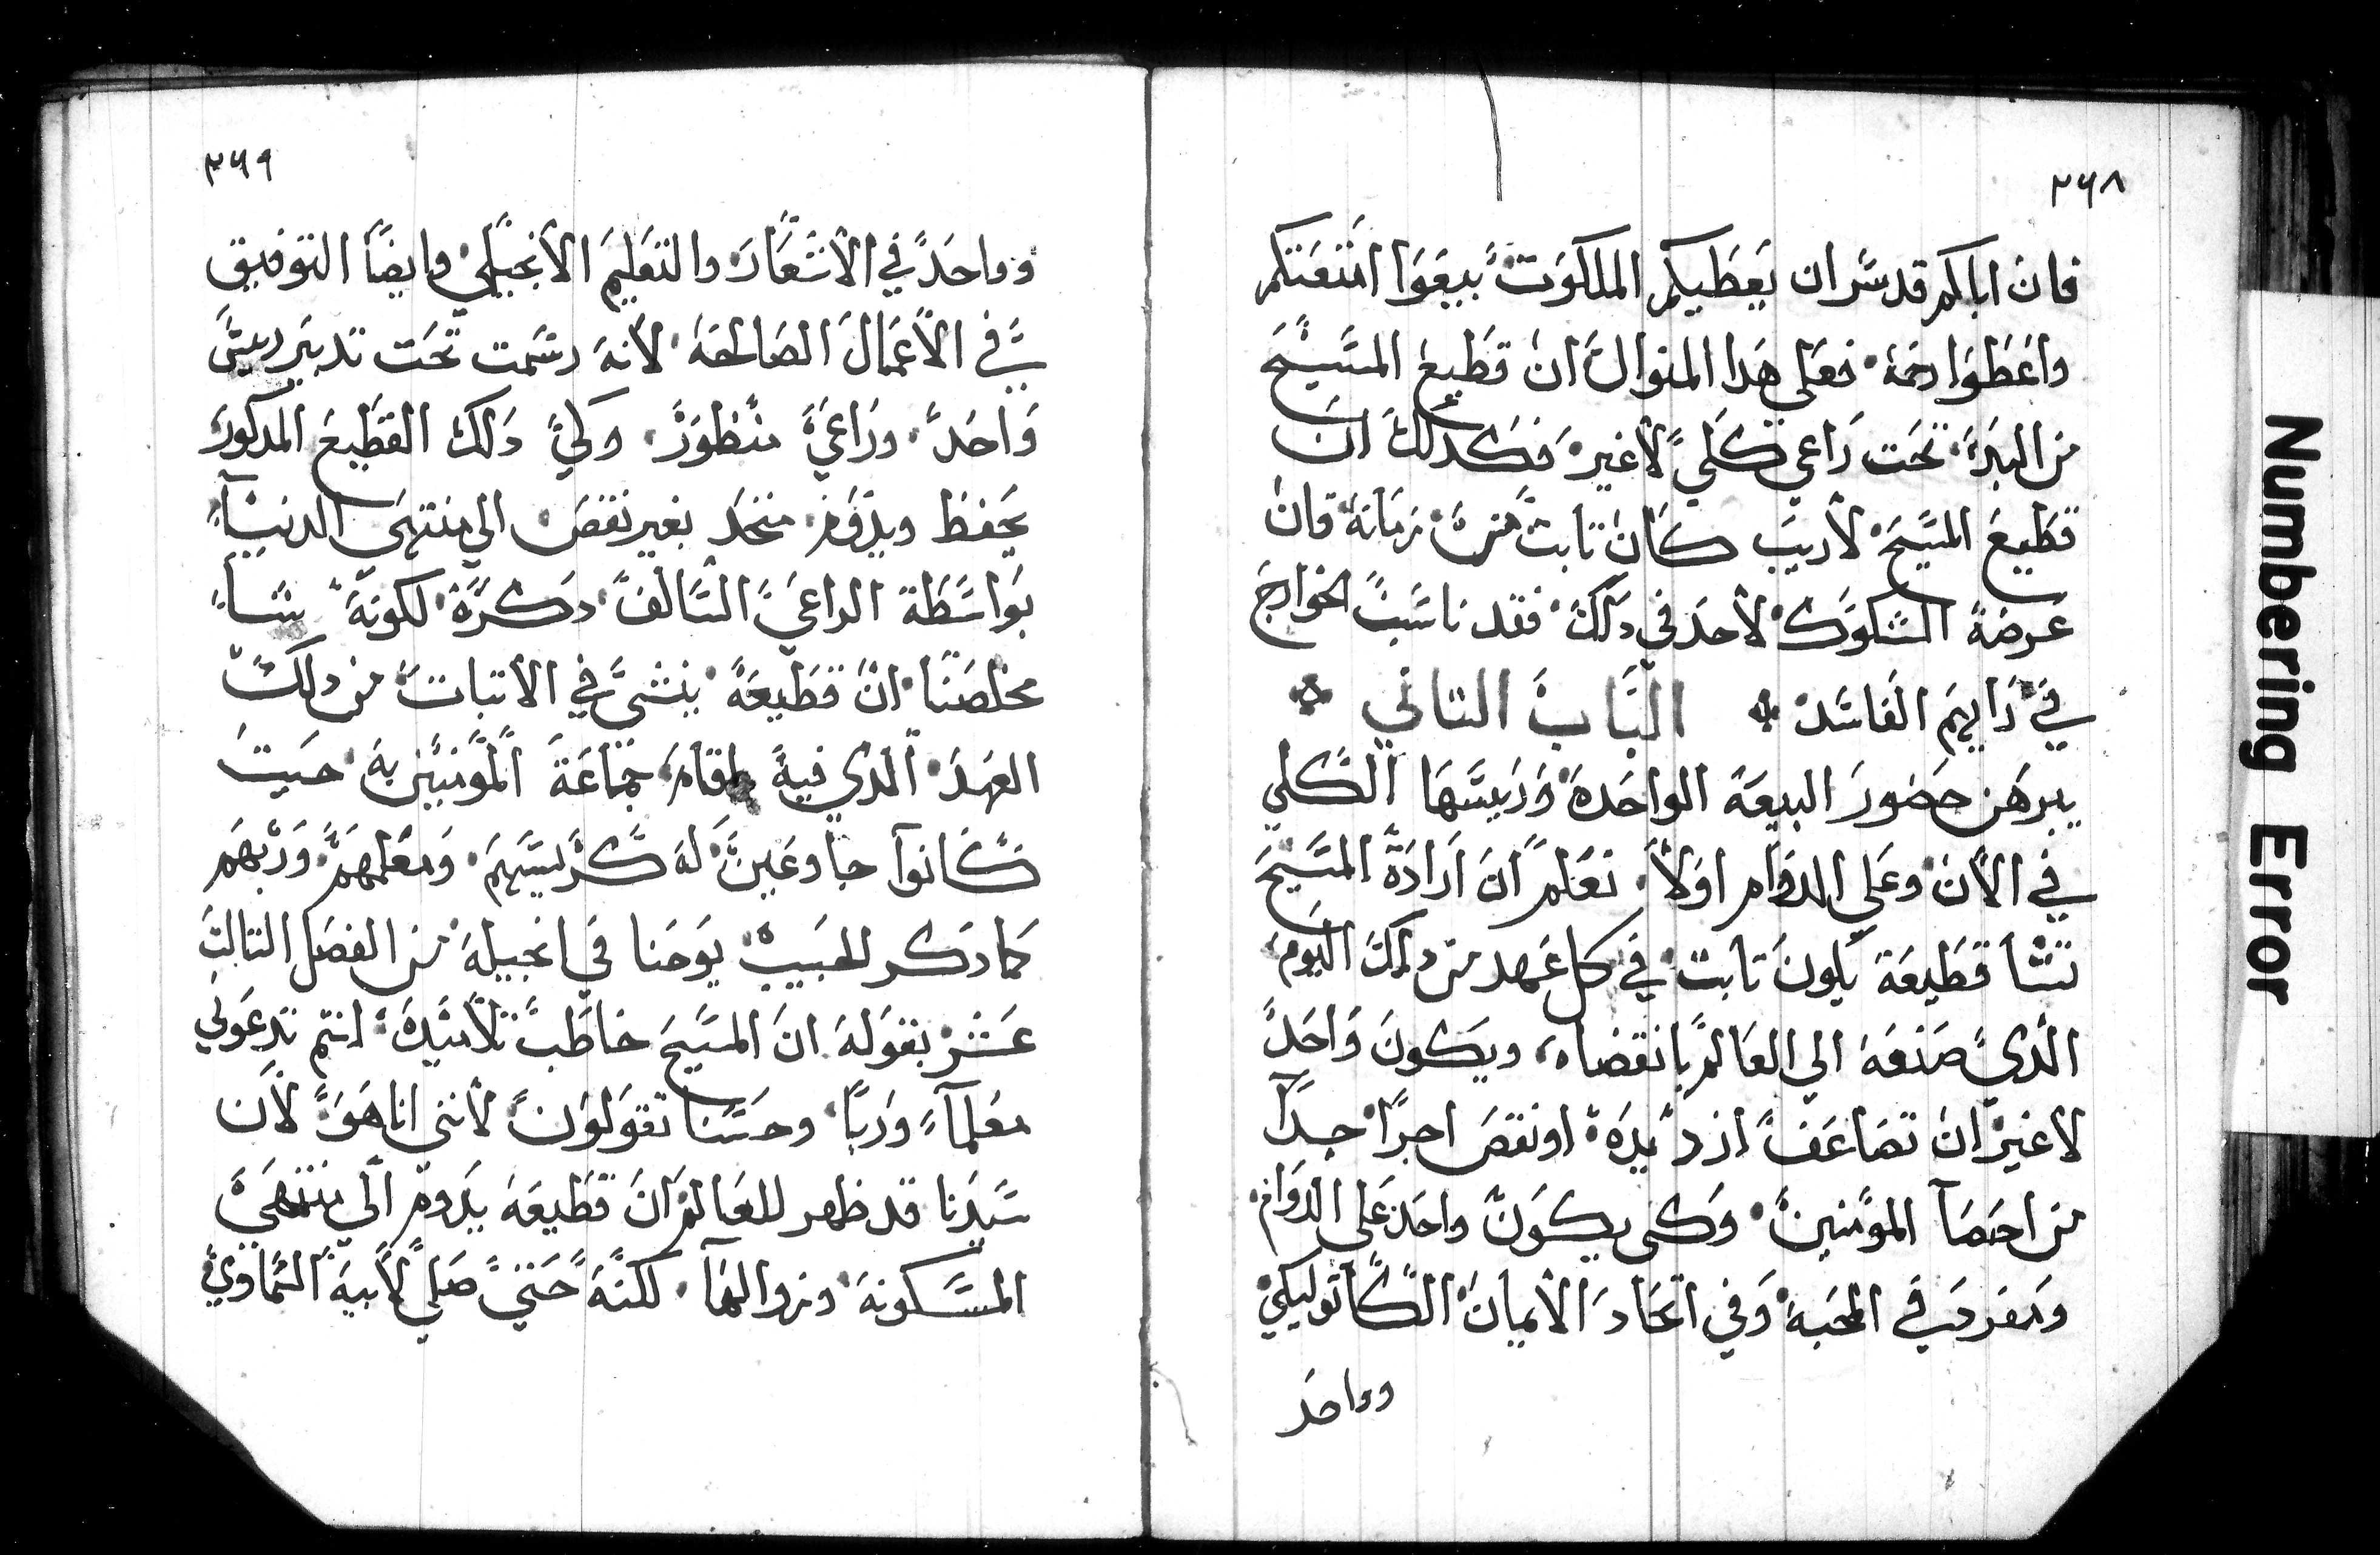 ٢٦٨
فان اباكم قد سر ان يعطيكم الملكوت بيعوا امتعتكم
واعطوا رحمة فعلي هدا المنوال ان قطيع المسيح
من البدء تحت راعي كلي لا غير فكدلك ان
قطيع المسيح لا ريب كان تابت من زمانه فان
عرضة الشكوك لاحد في دلك فقد ناسب الخوارج
في رايهم الفاسد الباب التاني
يبرهن حضور البيعة الواحدة وريسها الكلي
في الان وعلي الدوام اولا نعلم ان ارادة المسيح
تشا قطيعة يكون تابت في كل عهد من دلك اليوم
الدي صنعه الي العالم بانقضاه ويكون واحد
لا غير ان تضاعف ازد يده او نقص اجرا جدا
من احصآ المومنين وكي يكون واحد علي الدوام
ومفرد في المحبة وفي اتحاد الايمان الكاتوليكي
وواحد
٢٦٩
وواحد في الانتعاد والتعليم الانجيلي وايضا التوفيق
في الاعمال الصالحة لانه رسمت تحت تدبير ريس
واحد وراعي منظور وكلي دلك القطيع المدكور
يحفظ ويدوم متحد بغير نقص الي منتهي الدنيا
بواسطة الراعي السالف دكره لكونه يشاء
مخلصنا ان قطيعه ينشي في الاتبات من دلك
العهد الدي فيه اقام جماعة المومنين به حيت
كانوا جاوعين له كريسهم ومعلمهم وربهم
كما دكر الحبيب يوحنا في انجيله من الفصل التالت
عشر بقوله ان المسيح خاطب تلاميده انتم تدعوني
معلمآ وربا وحسنا تقولون لانني انا هو لان
سيدنا قد ظهر للعالم ان قطيعه يدوم الي منتهي
المسكونة وزوالها لكنه حتي صلي لابيه السماوي
Numbering Error